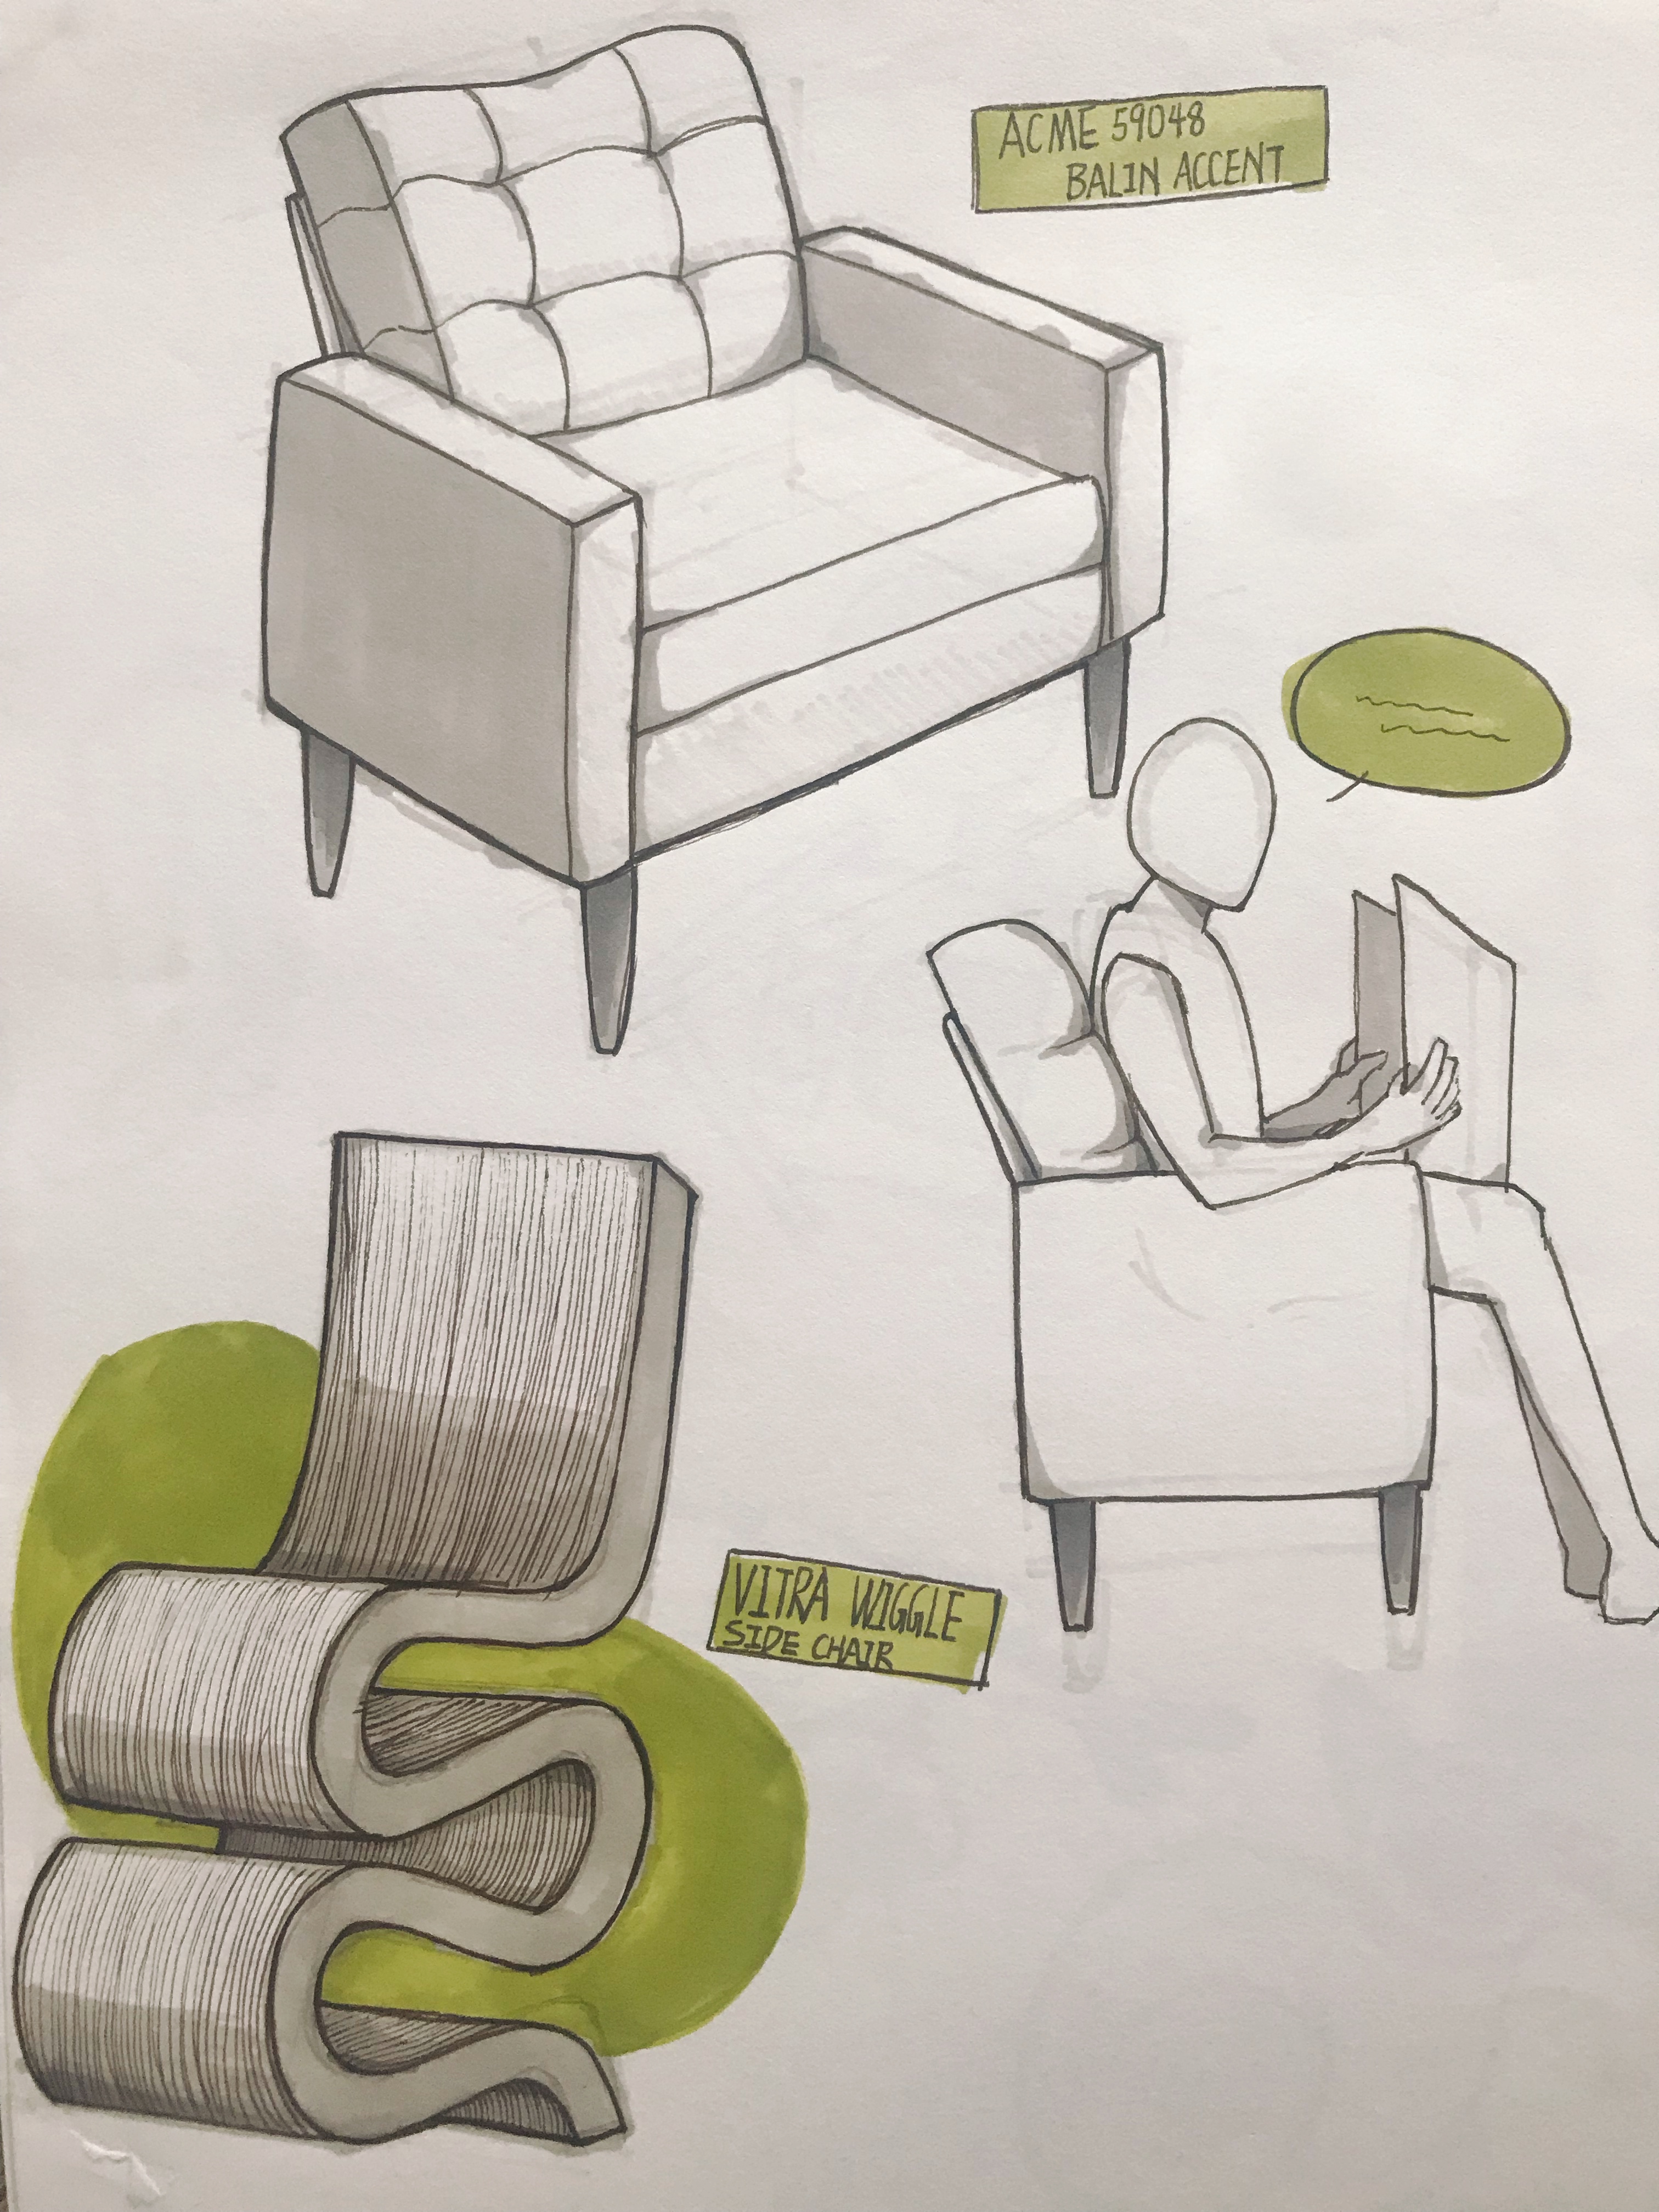 ACME 59048
BALIN ACCENT
VITRA WIGGLE
SIDE CHAIR